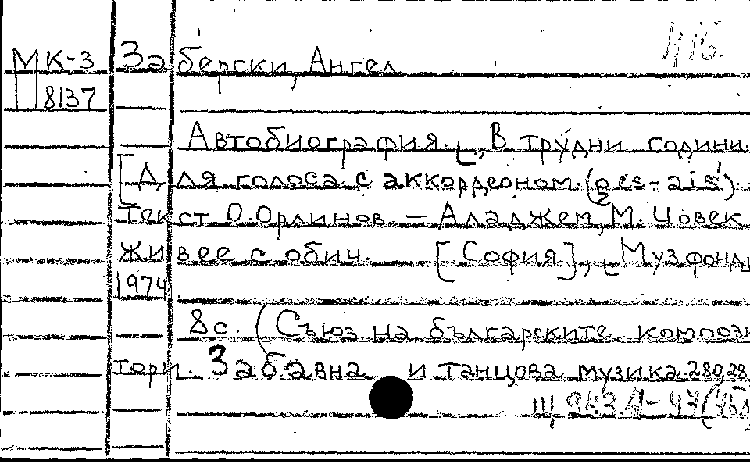 МК-3 Заберски, Ангел
8137
Автобиография. „В трудни години.
[Для голоса с аккордеоном (ges-ais').
Текст О. Орлинов. — Аладжем, М. Човек
живее с обич. [София], Музфонд,
1974
8 с. (Съюз на българските компози
тори. Забавна и танцова музика